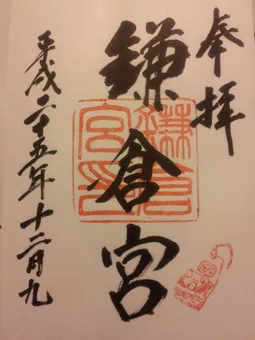 奉拝
鎌倉宮
鎌倉
宮印
平成二十五年十二月九